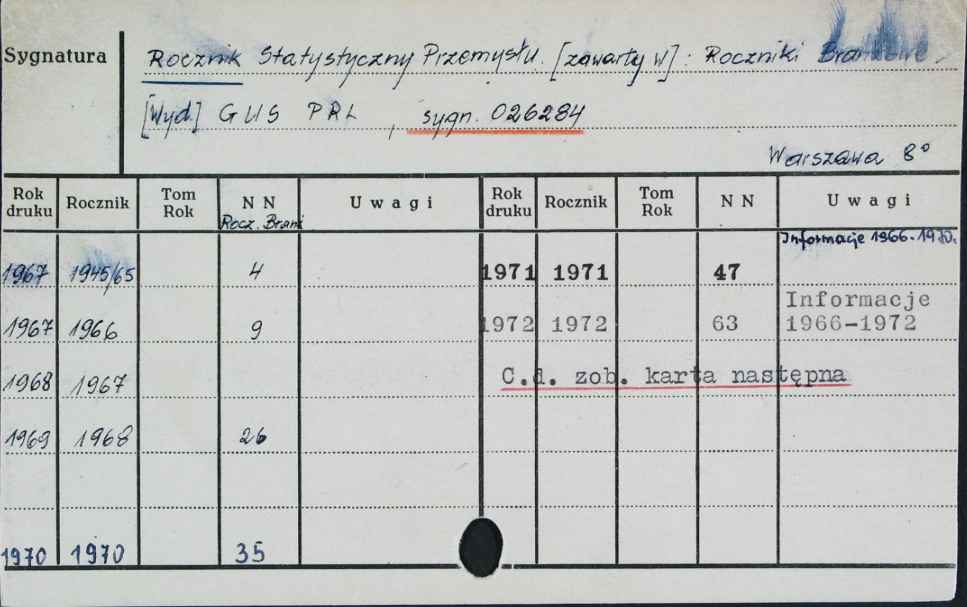 Sygnatura Rocznik Statystyczny Przemysłu. [zawarty w]: Roczniki Branżowe.
[Wyd.] GUS PRL, sygn. 026284
Warszawa 8°
Rok druku Rocznik Tom Rok NN Uwagi Rok druku Rocznik Tom Rok NN Uwagi
Rocz. Branż
Informacje 1966-1970.
1967 1945/65 4 1971 1971 47
Informacje
1967 1966 9 1972 1972 63 1966-1972
1968 1967 C.d. zob. karta następna
1969 1968 26
1970 1970 35